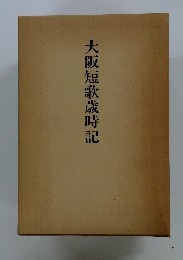 大阪短歌歳時記